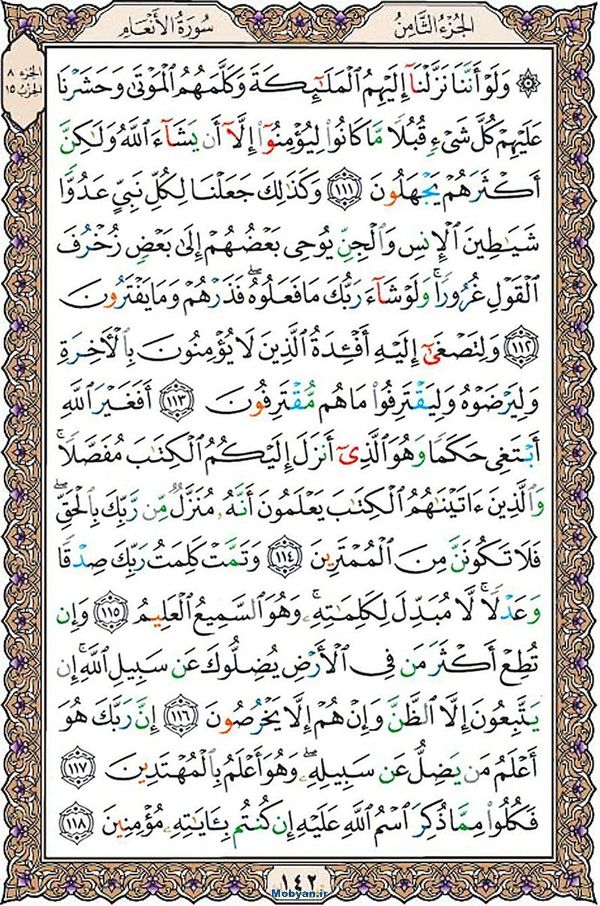 الجزء الثامن
سورة الأنعام
الجزء ٨
الحزب ١٥
۞ وَلَوْ أَنَّنَا نَزَّلْنَآ إِلَيْهِمُ ٱلْمَلَـٰٓئِكَةَ وَكَلَّمَهُمُ ٱلْمَوْتَىٰ وَحَشَرْنَا
عَلَيْهِمْ كُلَّ شَىْءٍ قُبُلًا مَّا كَانُوا۟ لِيُؤْمِنُوٓا۟ إِلَّآ أَن يَشَآءَ ٱللَّهُ وَلَـٰكِنَّ
أَكْثَرَهُمْ يَجْهَلُونَ ١١١ وَكَذَٰلِكَ جَعَلْنَا لِكُلِّ نَبِىٍّ عَدُوًّا
شَيَـٰطِينَ ٱلْإِنسِ وَٱلْجِنِّ يُوحِى بَعْضُهُمْ إِلَىٰ بَعْضٍ زُخْرُفَ
ٱلْقَوْلِ غُرُورًا ۚ وَلَوْ شَآءَ رَبُّكَ مَا فَعَلُوهُ ۖ فَذَرْهُمْ وَمَا يَفْتَرُونَ
١١٢ وَلِتَصْغَىٰٓ إِلَيْهِ أَفْـِٔدَةُ ٱلَّذِينَ لَا يُؤْمِنُونَ بِٱلْـَٔاخِرَةِ
وَلِيَرْضَوْهُ وَلِيَقْتَرِفُوا۟ مَا هُم مُّقْتَرِفُونَ ١١٣ أَفَغَيْرَ ٱللَّهِ
أَبْتَغِى حَكَمًا وَهُوَ ٱلَّذِىٓ أَنزَلَ إِلَيْكُمُ ٱلْكِتَـٰبَ مُفَصَّلًا ۚ
وَٱلَّذِينَ ءَاتَيْنَـٰهُمُ ٱلْكِتَـٰبَ يَعْلَمُونَ أَنَّهُۥ مُنَزَّلٌ مِّن رَّبِّكَ بِٱلْحَقِّ ۖ
فَلَا تَكُونَنَّ مِنَ ٱلْمُمْتَرِينَ ١١٤ وَتَمَّتْ كَلِمَتُ رَبِّكَ صِدْقًا
وَعَدْلًا ۚ لَّا مُبَدِّلَ لِكَلِمَـٰتِهِۦ ۚ وَهُوَ ٱلسَّمِيعُ ٱلْعَلِيمُ ١١٥ وَإِن
تُطِعْ أَكْثَرَ مَن فِى ٱلْأَرْضِ يُضِلُّوكَ عَن سَبِيلِ ٱللَّهِ ۚ إِن
يَتَّبِعُونَ إِلَّا ٱلظَّنَّ وَإِنْ هُمْ إِلَّا يَخْرُصُونَ ١١٦ إِنَّ رَبَّكَ هُوَ
أَعْلَمُ مَن يَضِلُّ عَن سَبِيلِهِۦ ۖ وَهُوَ أَعْلَمُ بِٱلْمُهْتَدِينَ ١١٧
فَكُلُوا۟ مِمَّا ذُكِرَ ٱسْمُ ٱللَّهِ عَلَيْهِ إِن كُنتُم بِـَٔايَـٰتِهِۦ مُؤْمِنِينَ ١١٨
١٤٢
Mobyan.ir